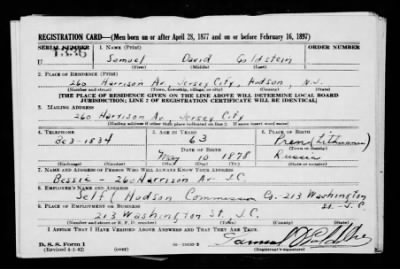 REGISTRATION CARD—(Men born on or after April 28, 1877 and on or before February 16, 1897)
SERIAL NUMBER
1. NAME (Print)
ORDER NUMBER
U
Samuel David Goldstein
(First) (Middle) (Last)
2. PLACE OF RESIDENCE (Print)
260 Harrison Av. Jersey City, Hudson, N.J.
(Number and street) (Town, township, village, or city) (County) (State)
[THE PLACE OF RESIDENCE GIVEN ON THE LINE ABOVE WILL DETERMINE LOCAL BOARD
JURISDICTION; LINE 2 OF REGISTRATION CERTIFICATE WILL BE IDENTICAL]
3. MAILING ADDRESS
260 Harrison Av Jersey City
(Mailing address if other than place indicated on line 2. If same insert word same)
4. TELEPHONE
5. AGE IN YEARS
63
6. PLACE OF BIRTH
(Lithuania)
DATE OF BIRTH
May 10 1878
Russia
(Mo.) (Day) (Yr.)
7. NAME AND ADDRESS OF PERSON WHO WILL ALWAYS KNOW YOUR ADDRESS
Bessie - 260 Harrison Av J.C.
8. EMPLOYER'S NAME AND ADDRESS
Self / Hudson Commission Co. 213 Washington
St. J.C.
213 Washington St. J.C.
I AFFIRM THAT I HAVE VERIFIED ABOVE ANSWERS AND THAT THEY ARE TRUE.
D. S. S. Form 1
(Revised 4-1-42) (over)